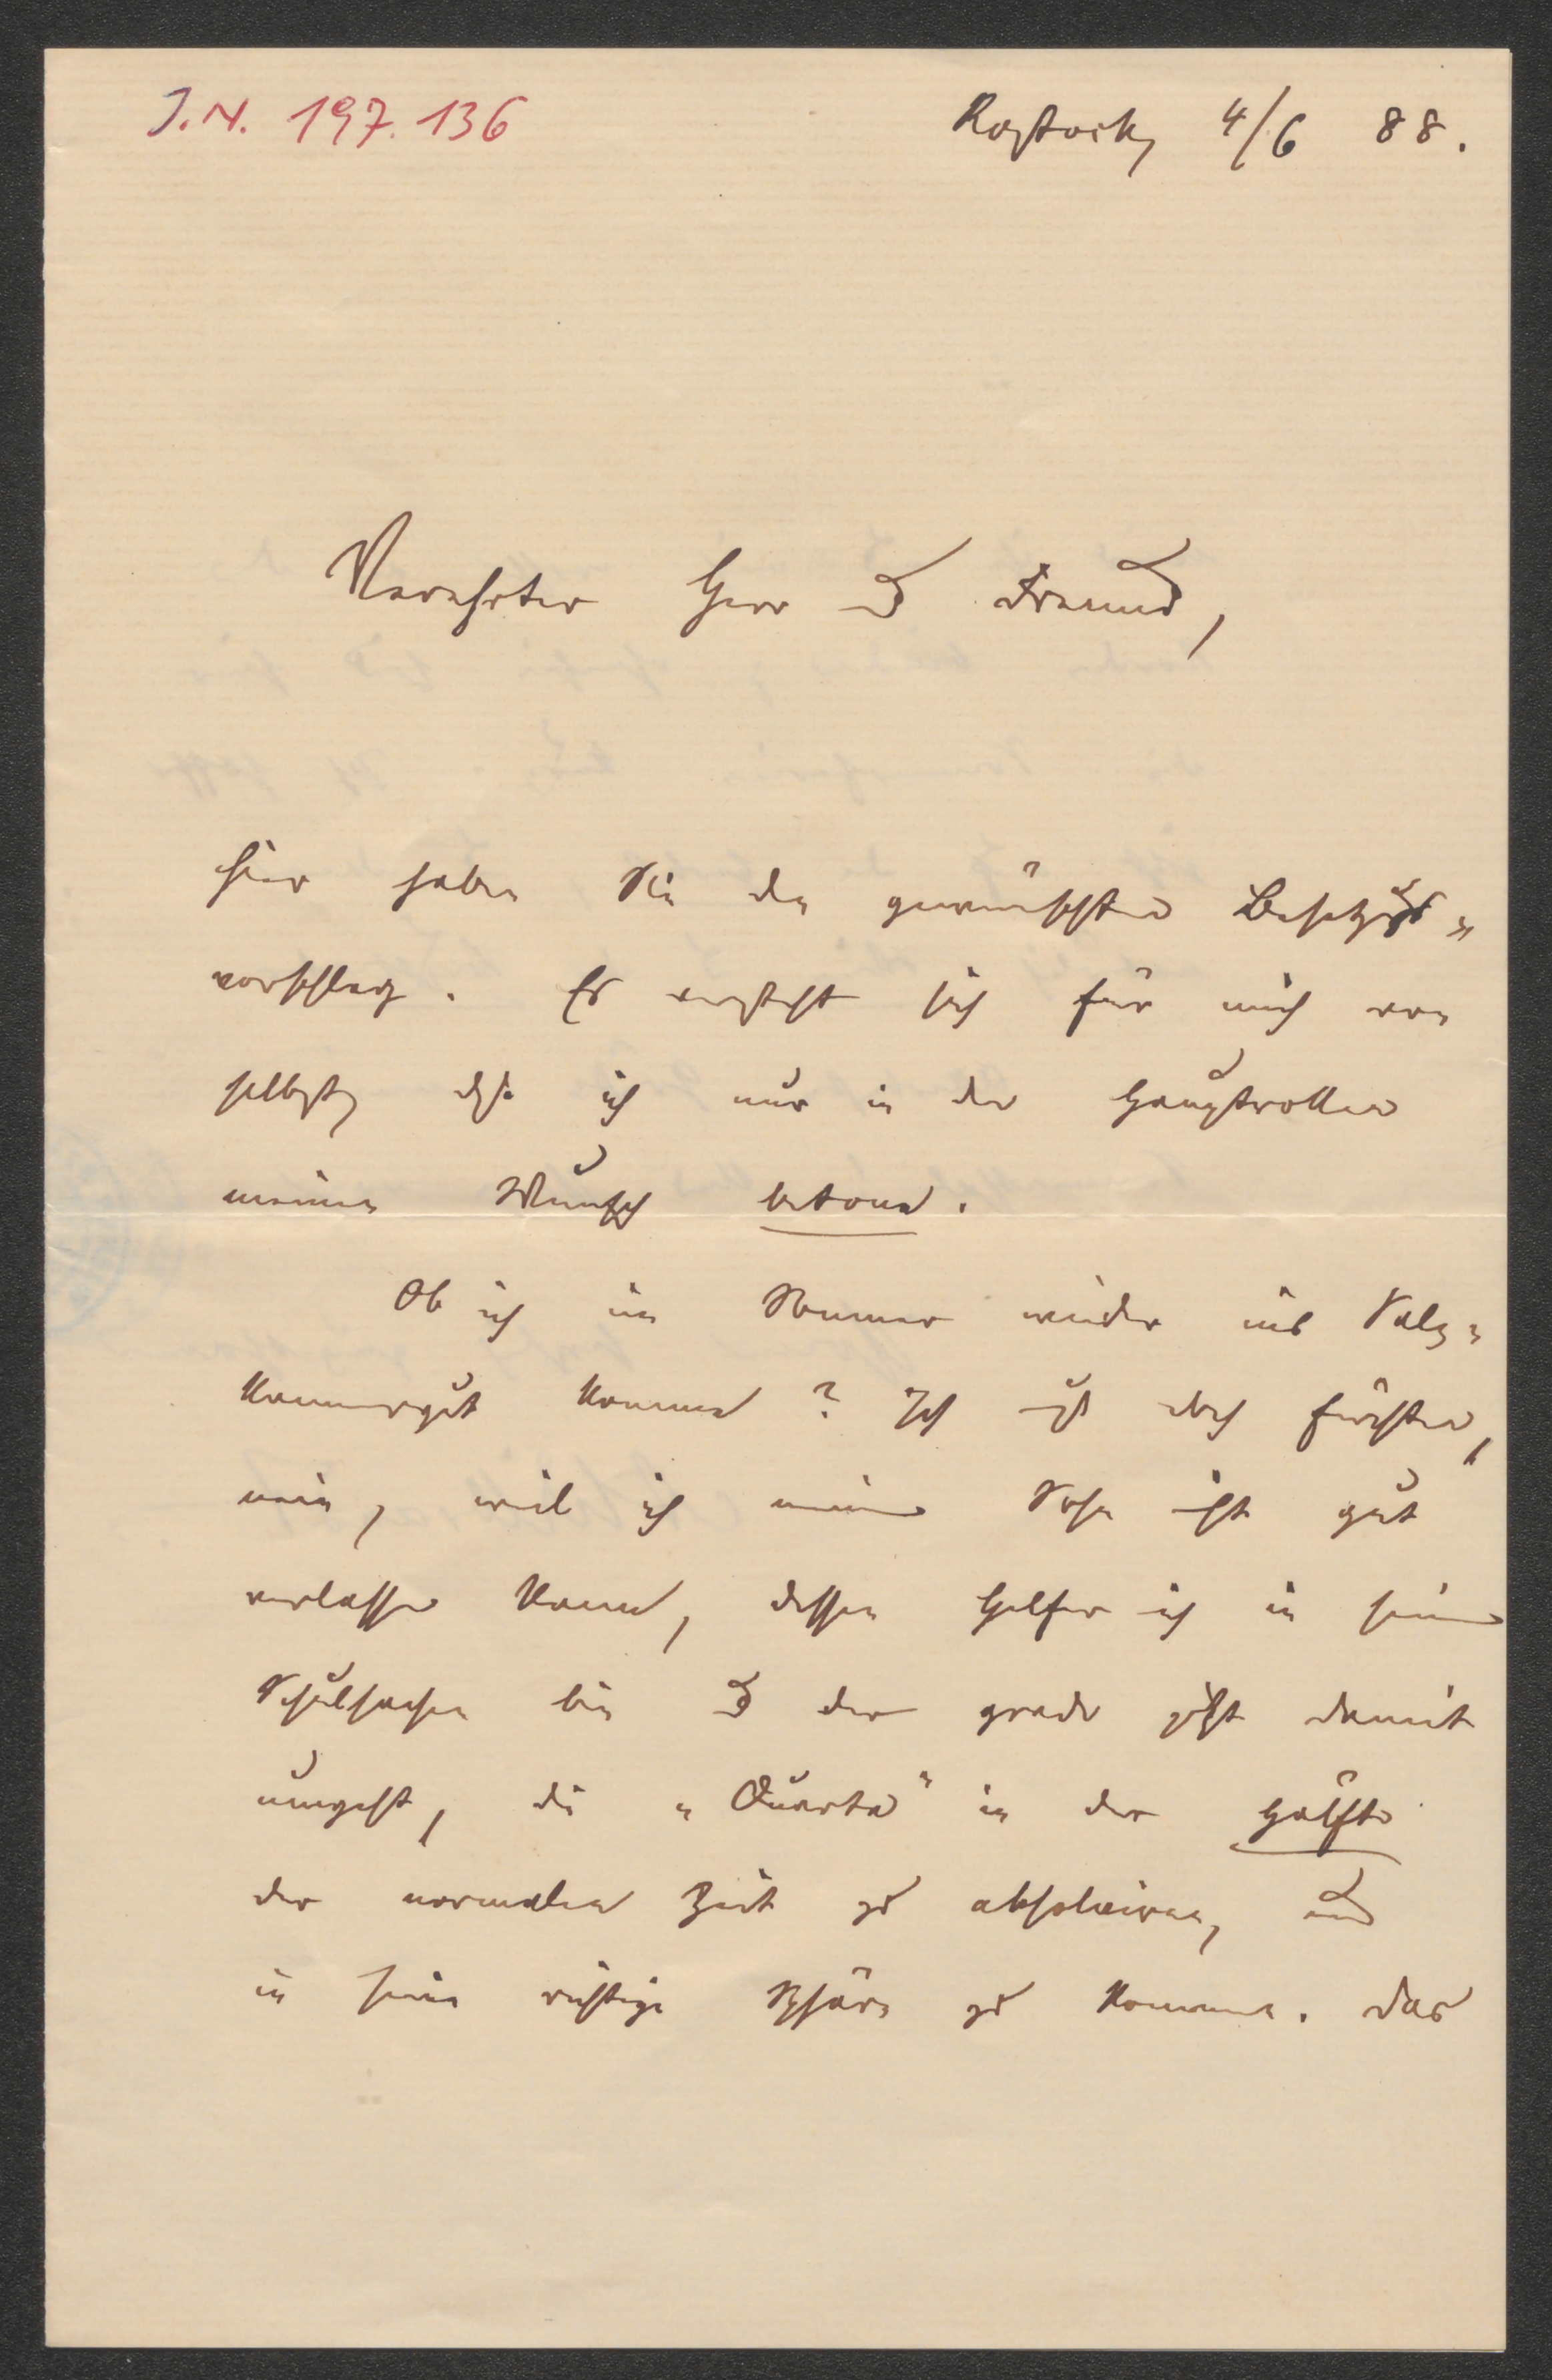 J.N. 197.136
Rostock, 4/6 88.
Verehrter Herr und Freund,
hier haben Sie den gewünschten Besetzungs-
vorschlag. Es versteht sich für mich von
selbst, daß ich nur in den Hauptrollen
meinen Wunsch betone.
Ob ich im Sommer wieder ins Salz-
kammergut komme? Ich muß doch fürchten,
nein, weil ich meinen Sohn nicht gut
verlassen kann, dessen Helfer ich in seinen
Schulsachen bin und der grade jetzt damit
umgeht, die „Quarta" in der Hälfte
der normalen Zeit zu absolviren, und
in seine richtige Sphäre zu kommen. Das